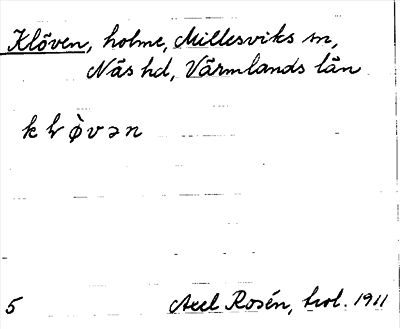 Klöven, holme, Millesviks sn,
Näs hd, Värmlands län
5
Axel Rosén, hol. 1911